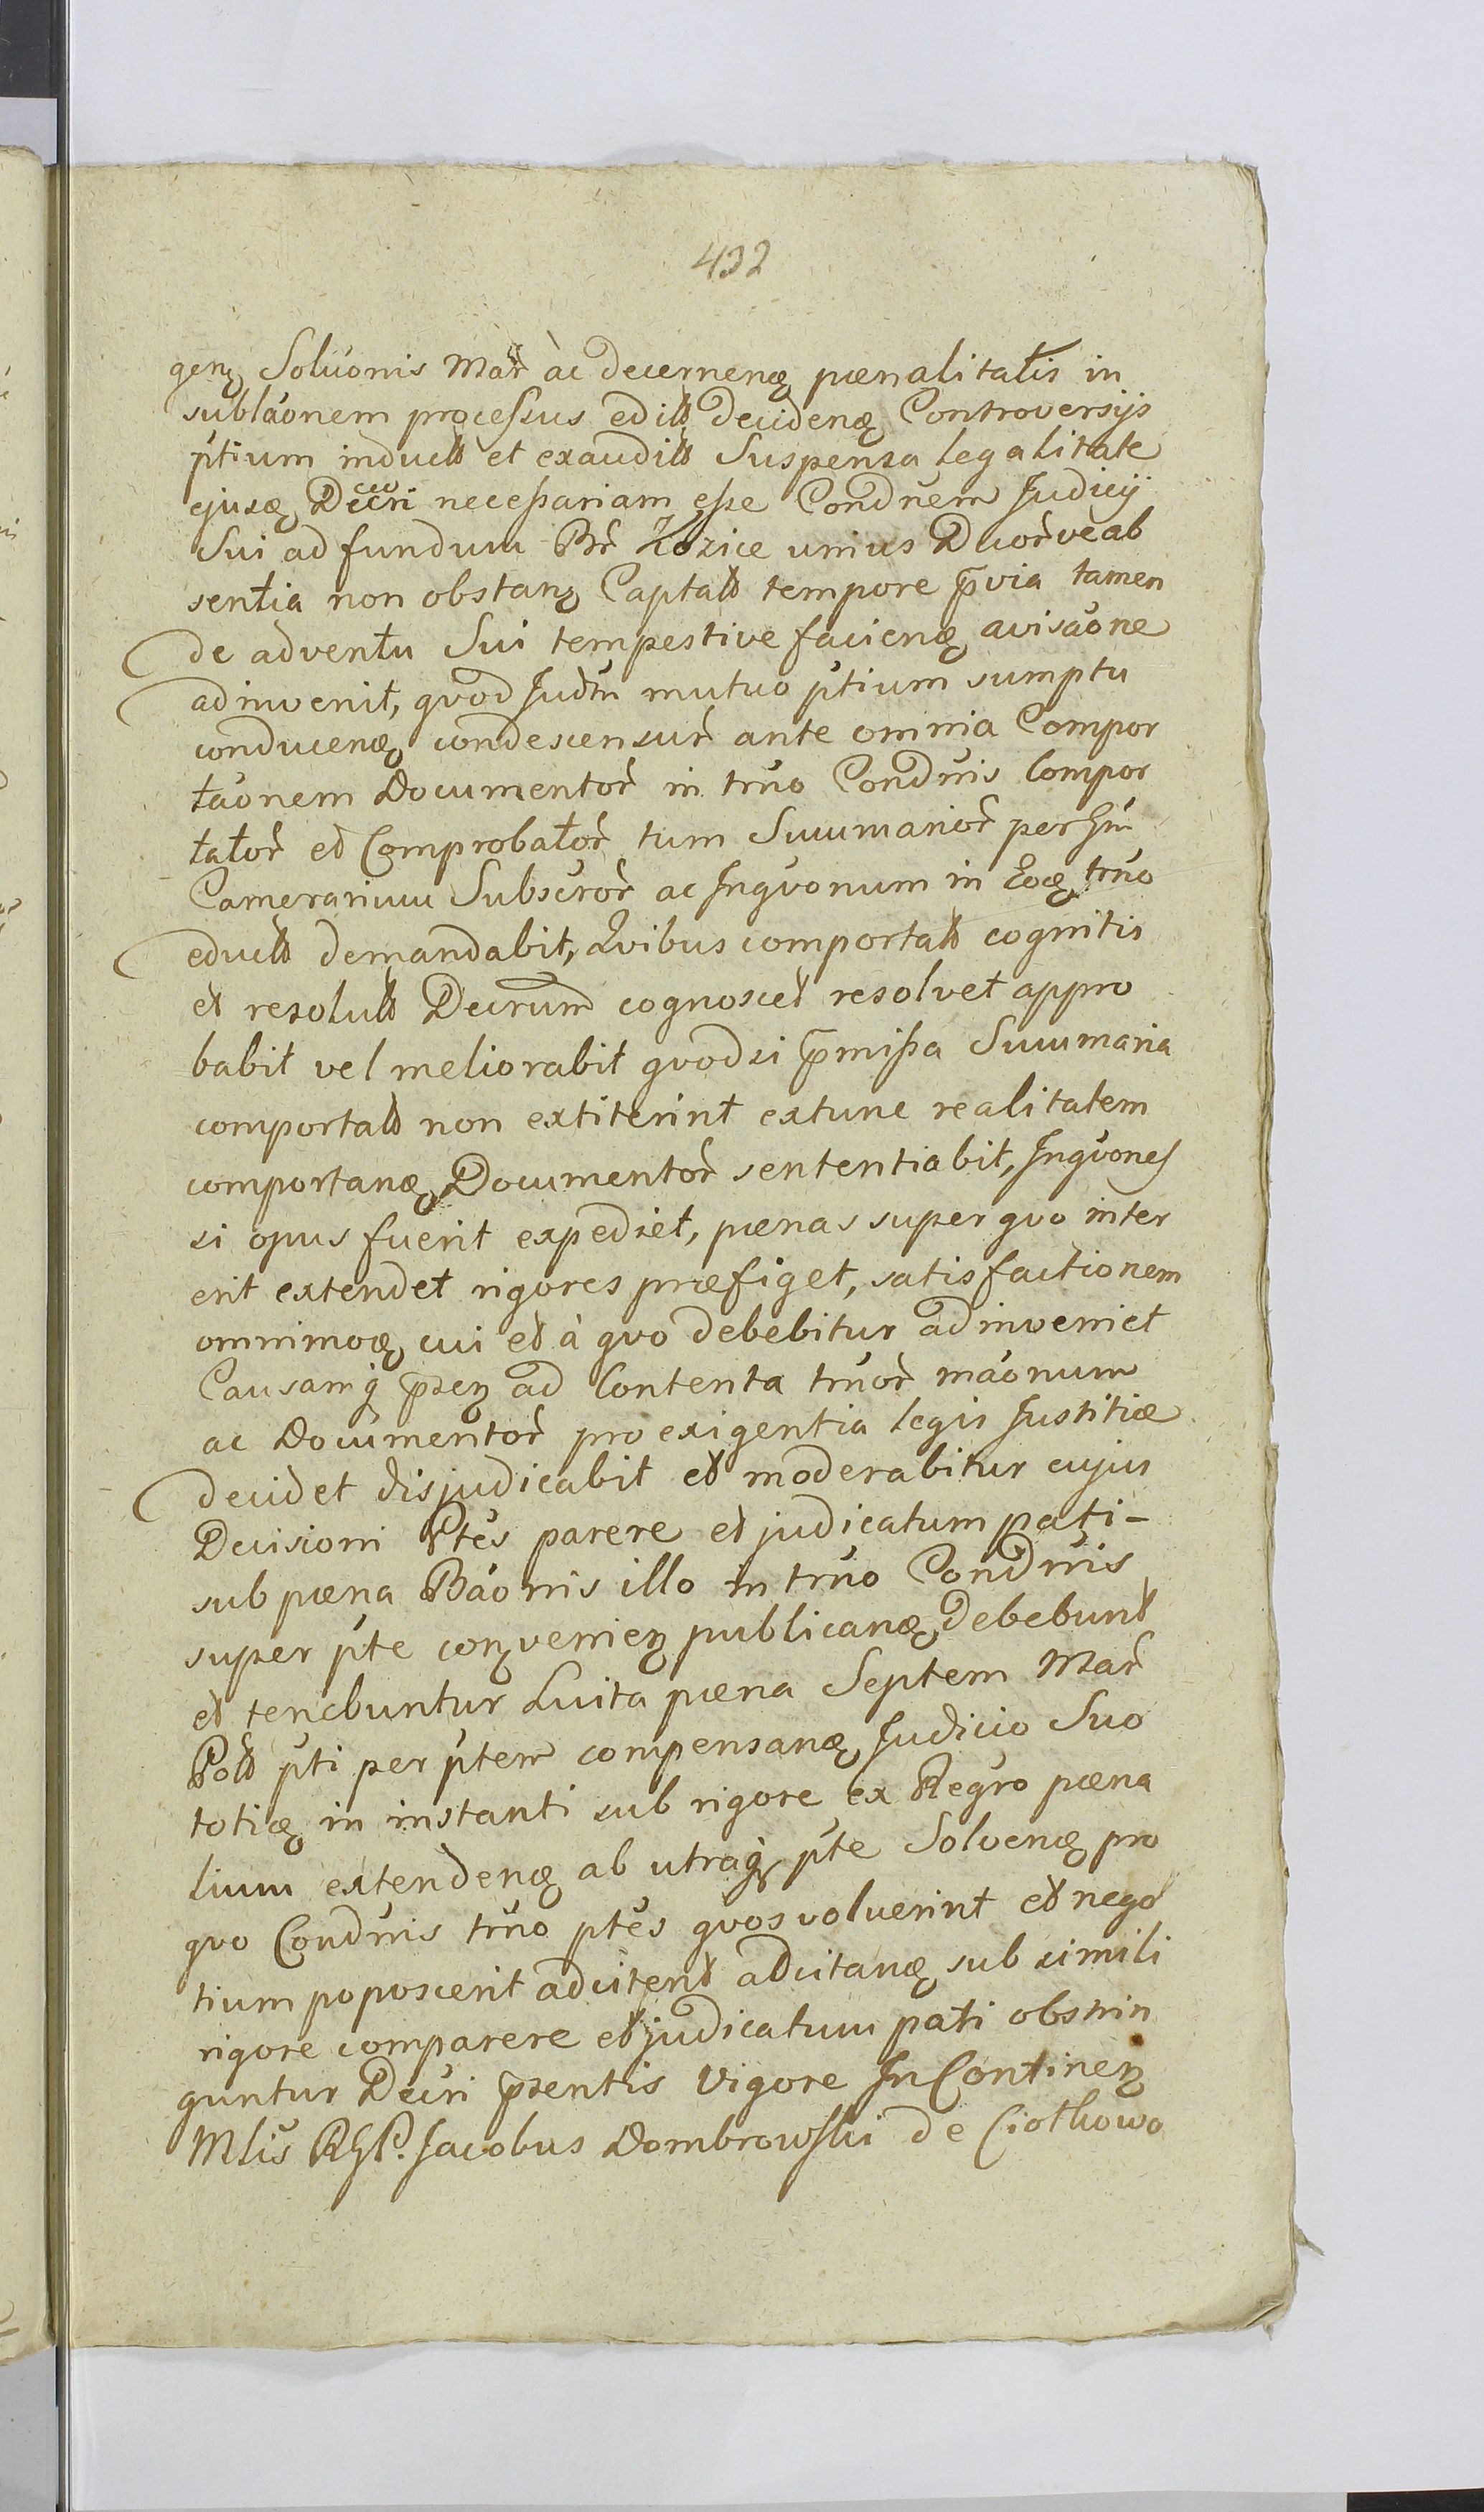 432
genꝫ Soluonis Mar ac decernenꝫ pœnalitatis in
sublaonem processus edit decidenꝫ Controversijs
ptium induct et exaudit Suspensa legalitate
ejusꝫ Decri necessariam esse Condnem Judicij
Sui ad fundum Br Kozice unius Duorve ab
sentia non obstanꝫ Captat tempore pvia tamen
de adventu Sui tempestive facienꝫ avisaone
adinvenit, qvod Judm mutuo ptium sumptu
conducenꝫ condescensur ante omnia Compor
taonem Documentor in trno Condnis Compor
tator et Comprobator tum Summarior per Jm
Camerarium Subscror ac Inqvonum in Eoꝫ trno
educt demandabit, Qvibus comportat cognitis
et resolut Decrum cognoscet resolvet appro
babit vel meliorabit qvodsi pmissa Summaria
comportat non extiterint extunc realitatem
comportanꝫ Documentor sententiabit, Inqvones
si opus fuerit expediet, pœnas super qvo inter
erit extendet rigores præfiget, satisfactionem
omnimoꝫ cui et à qvo debebitur adinveniet
Causamq psenꝫ ad Contenta trnor maonum
ac Documentor pro exigentia legis Justitiæ
decidet disjudicabit et moderabitur cujus
Decisioni Ptes parere et judicatum pati-
sub pœna Baonis illo in trno Condnis
super pte conꝫvenienꝫ publicanꝫ debebunt
et tenebuntur Luita pœna Septem Mar
Polt pti per ptem compensanꝫ Judicio Suo
totiꝫ in instanti sub rigore ex Regro pœna
lium extendenꝫ ab utraq pte Solvenꝫ pro
qvo Condnis trno ptes qvos voluerint et nego
tium poposcerit adcitent adcitanꝫ sub simili
rigore comparere et judicatum pati obstrin
guntur Decri psentis Vigore In Continenꝫ
Mlis Jacobus Dombrowski de Ciothowo